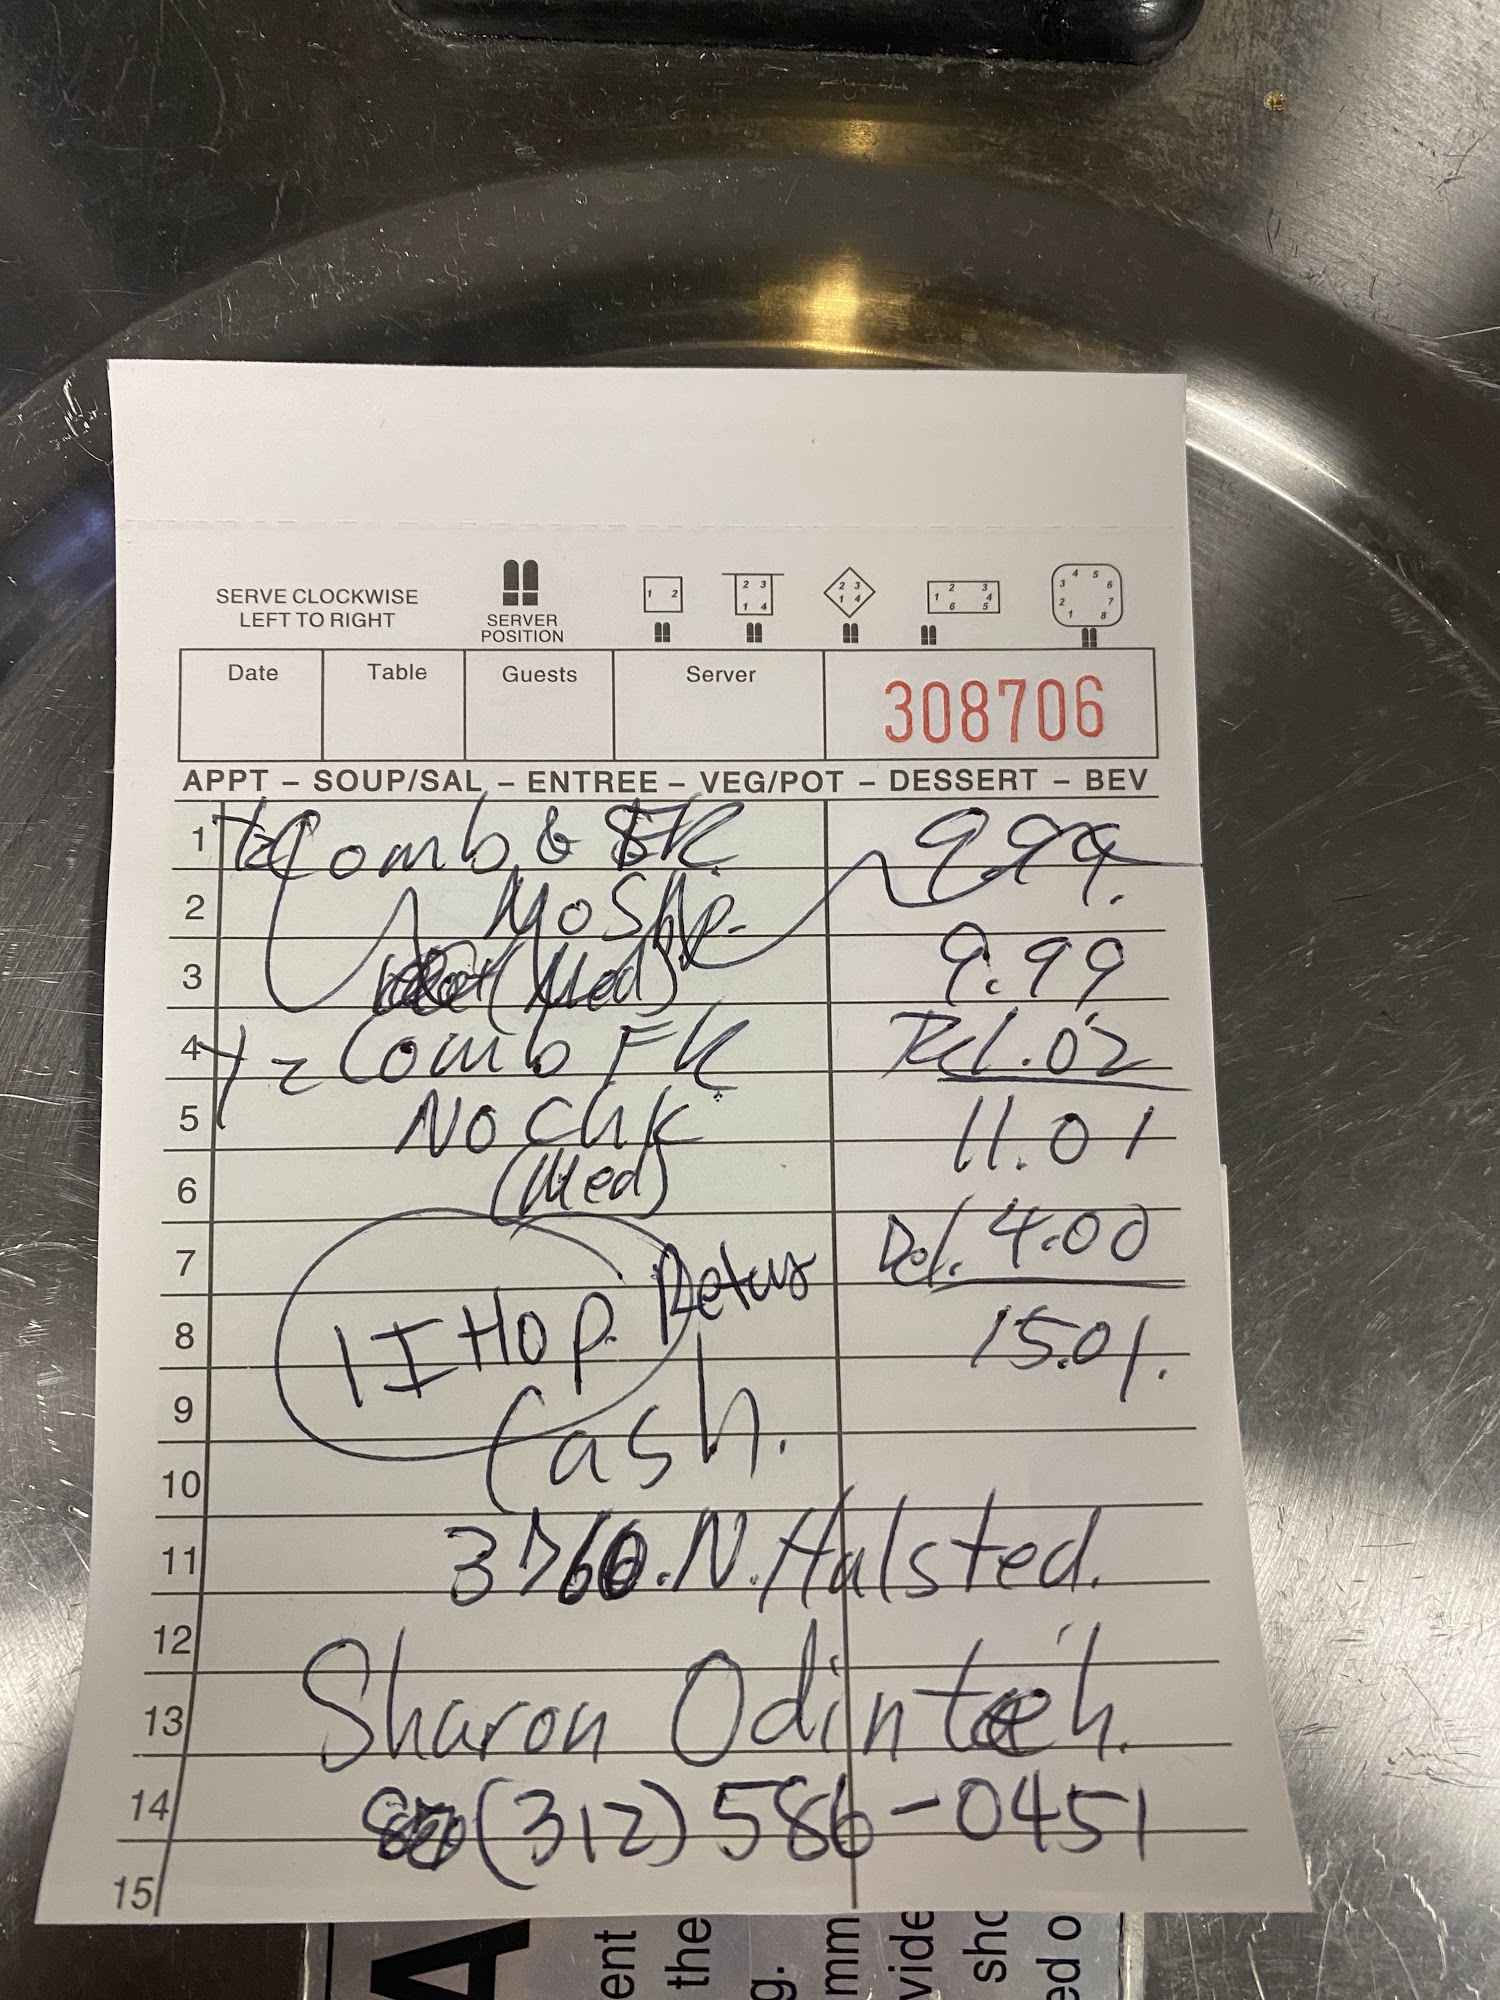 SERVE CLOCKWISE
LEFT TO RIGHT
SERVER
POSITION
1 2
2 3
1 4
2 3
1 4
1 2 3 4 5 6
1 2 3 4 5 6 7 8
Date Table Guests Server 308706
APPT – SOUP/SAL – ENTREE – VEG/POT – DESSERT – BEV
1 Comb & FR. 9.99.
2 No Shp.
3 (Med) 9.99
4 Y = Comb FR 1.02
5 No Chk 11.01
6 (Med)
7 Del. 4.00
8 1 IHOP. 15.01.
9 Cash.
10
11 3760. N. Halsted.
12
13 Sharon
14 (312) 586-0451
15
A
ent
the
g.
mm
vide
sho
ed o